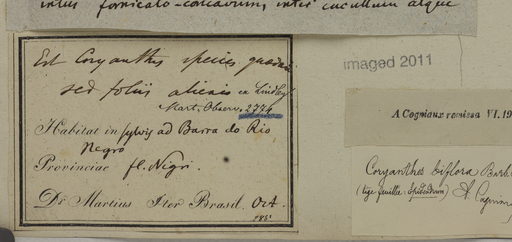 intus fornicato-concavum, inter cucullum atque
Est Coryanthes species quaedam
sed foliis alienis ex Lindley
Mart. Observ. 2774
Habitat in sylvis ad Barra do Rio
Negro
Provinciae fl. Nigri.
Dr. Martius Iter Brasil. Oct.
imaged 2011
A Cogniaux remissa VI.19
Coryanthes biflora Barb.
(tige feuillée: Epidendrum) A. Cogniaux